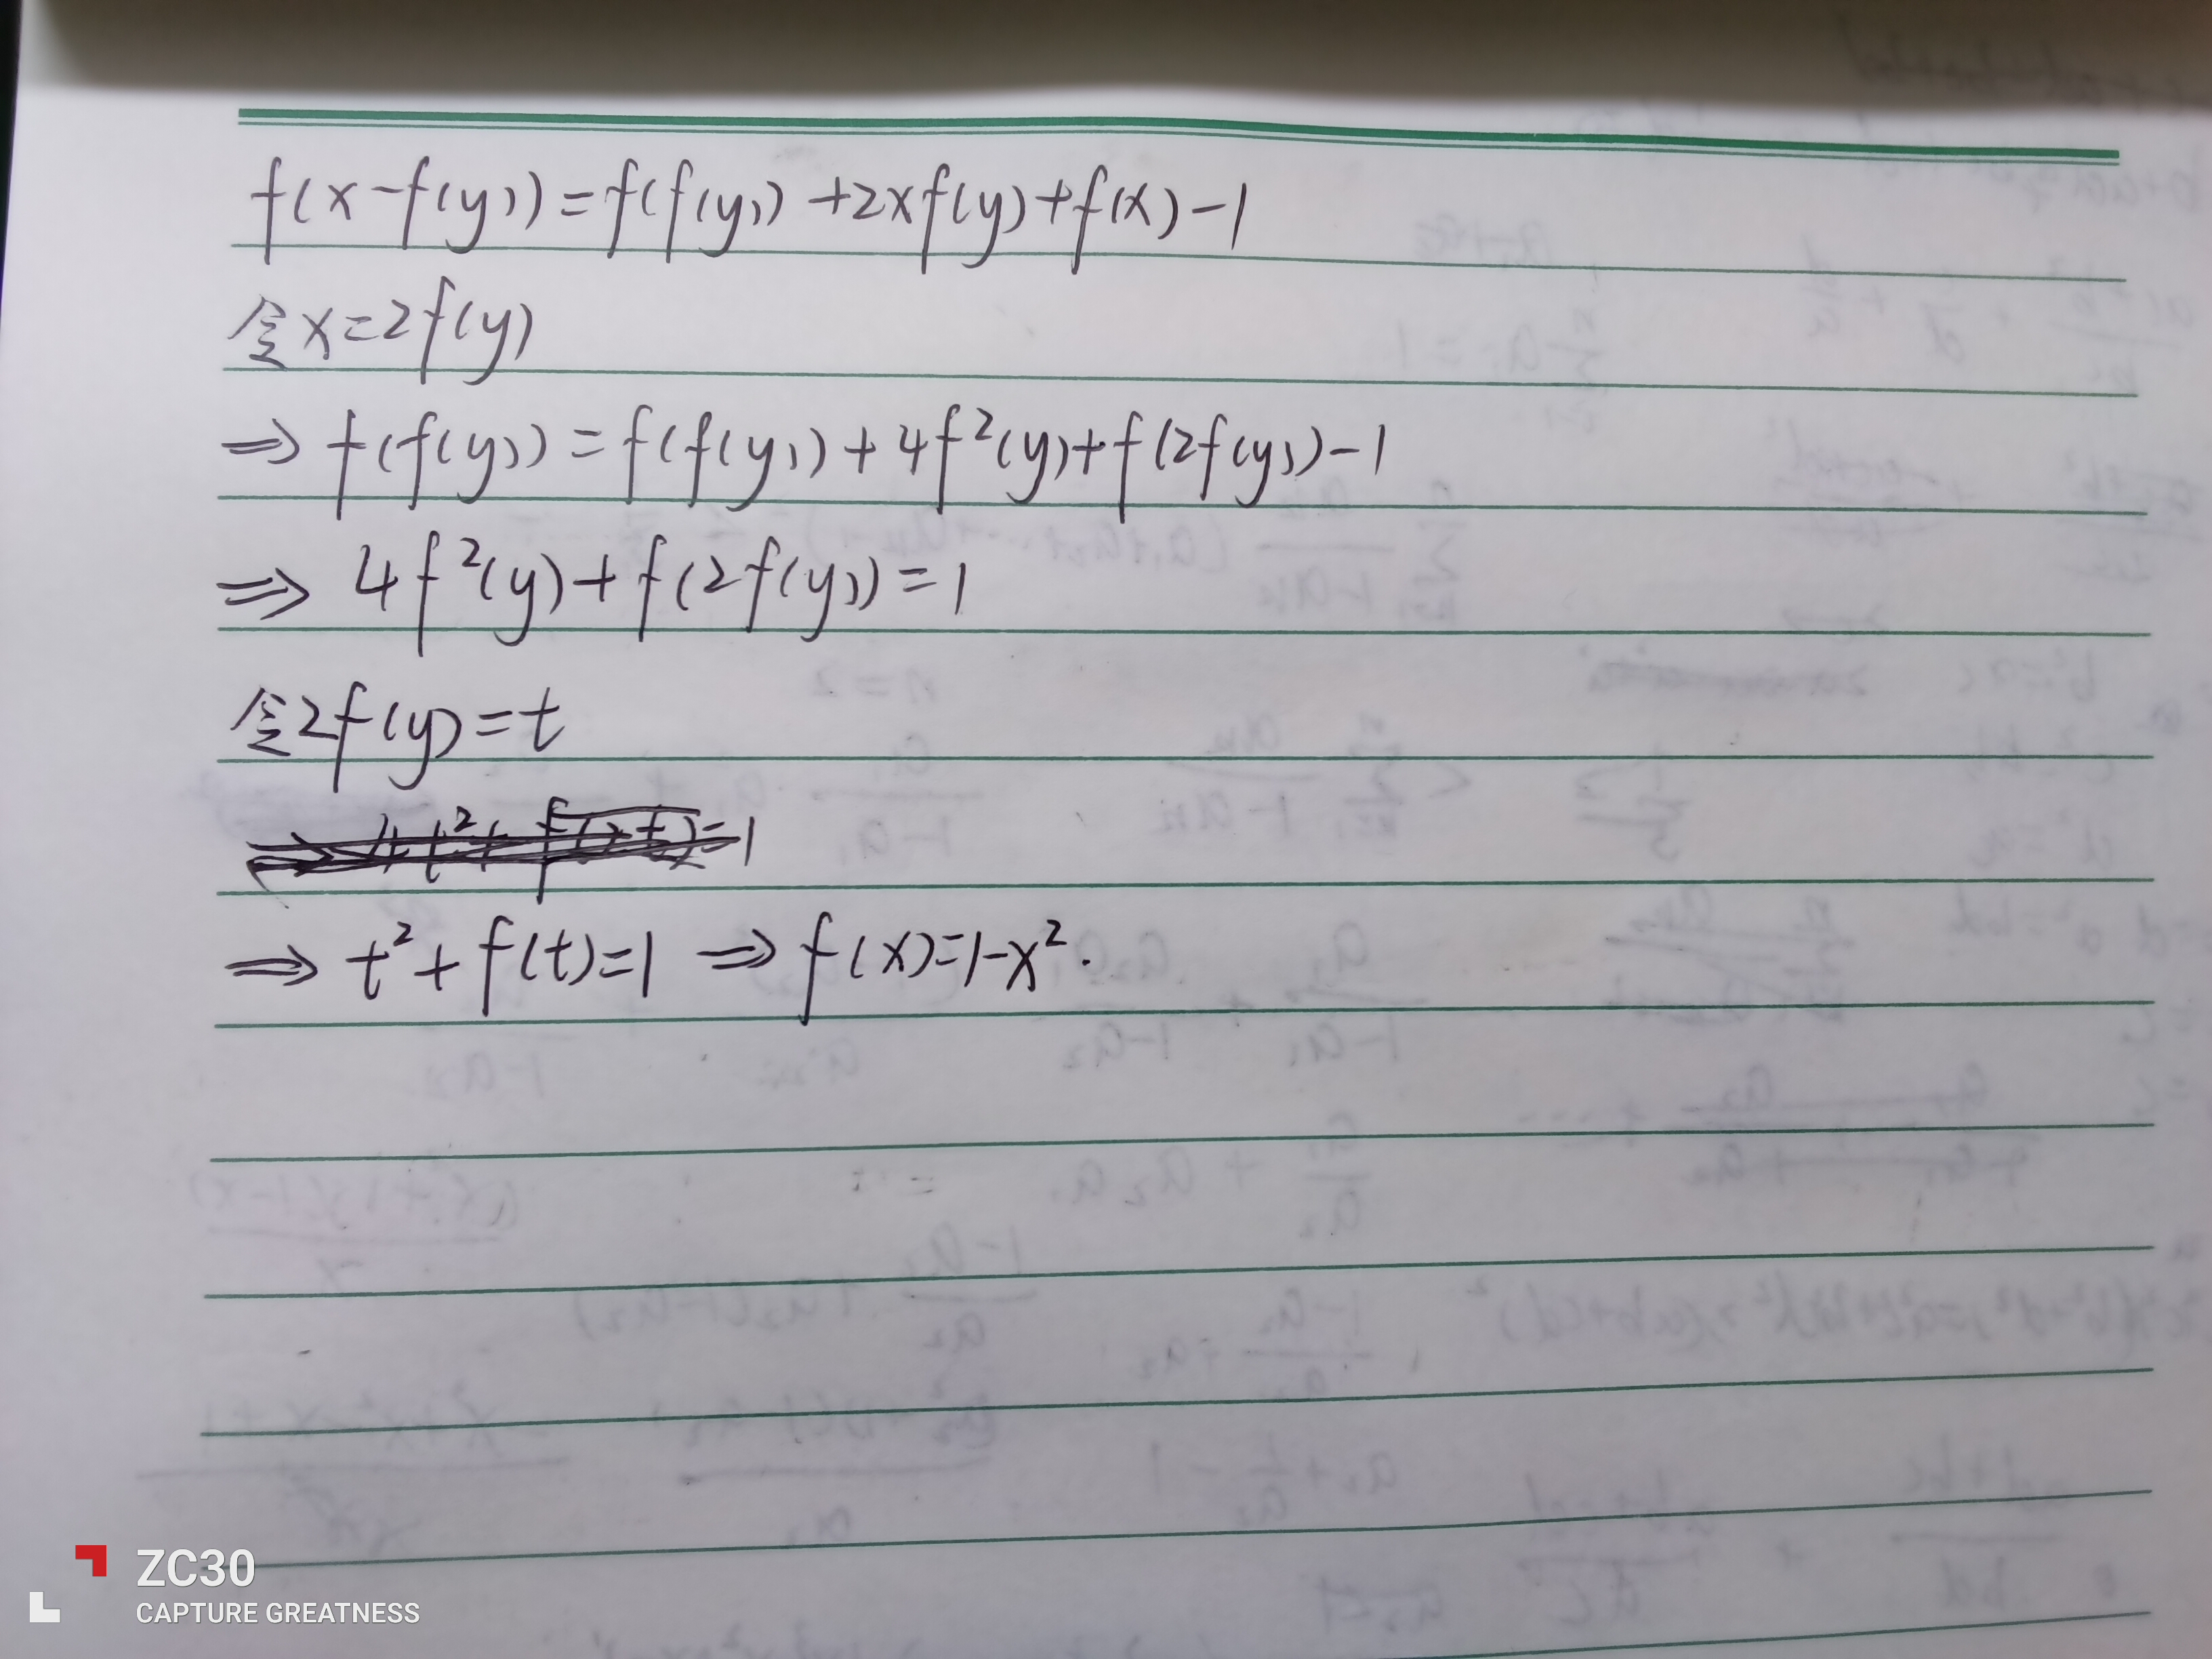 f(x-f(y))=f(f(y))+2xf(y)+f(x)-1
令x=2f(y)
⇒ f(f(y))=f(f(y))+4f²(y)+f(2f(y))-1
⇒ 4f²(y)+f(2f(y))=1
令2f(y)=t
⇒ t²+f(t)=1 ⇒ f(x)=1-x².
ZC30
CAPTURE GREATNESS